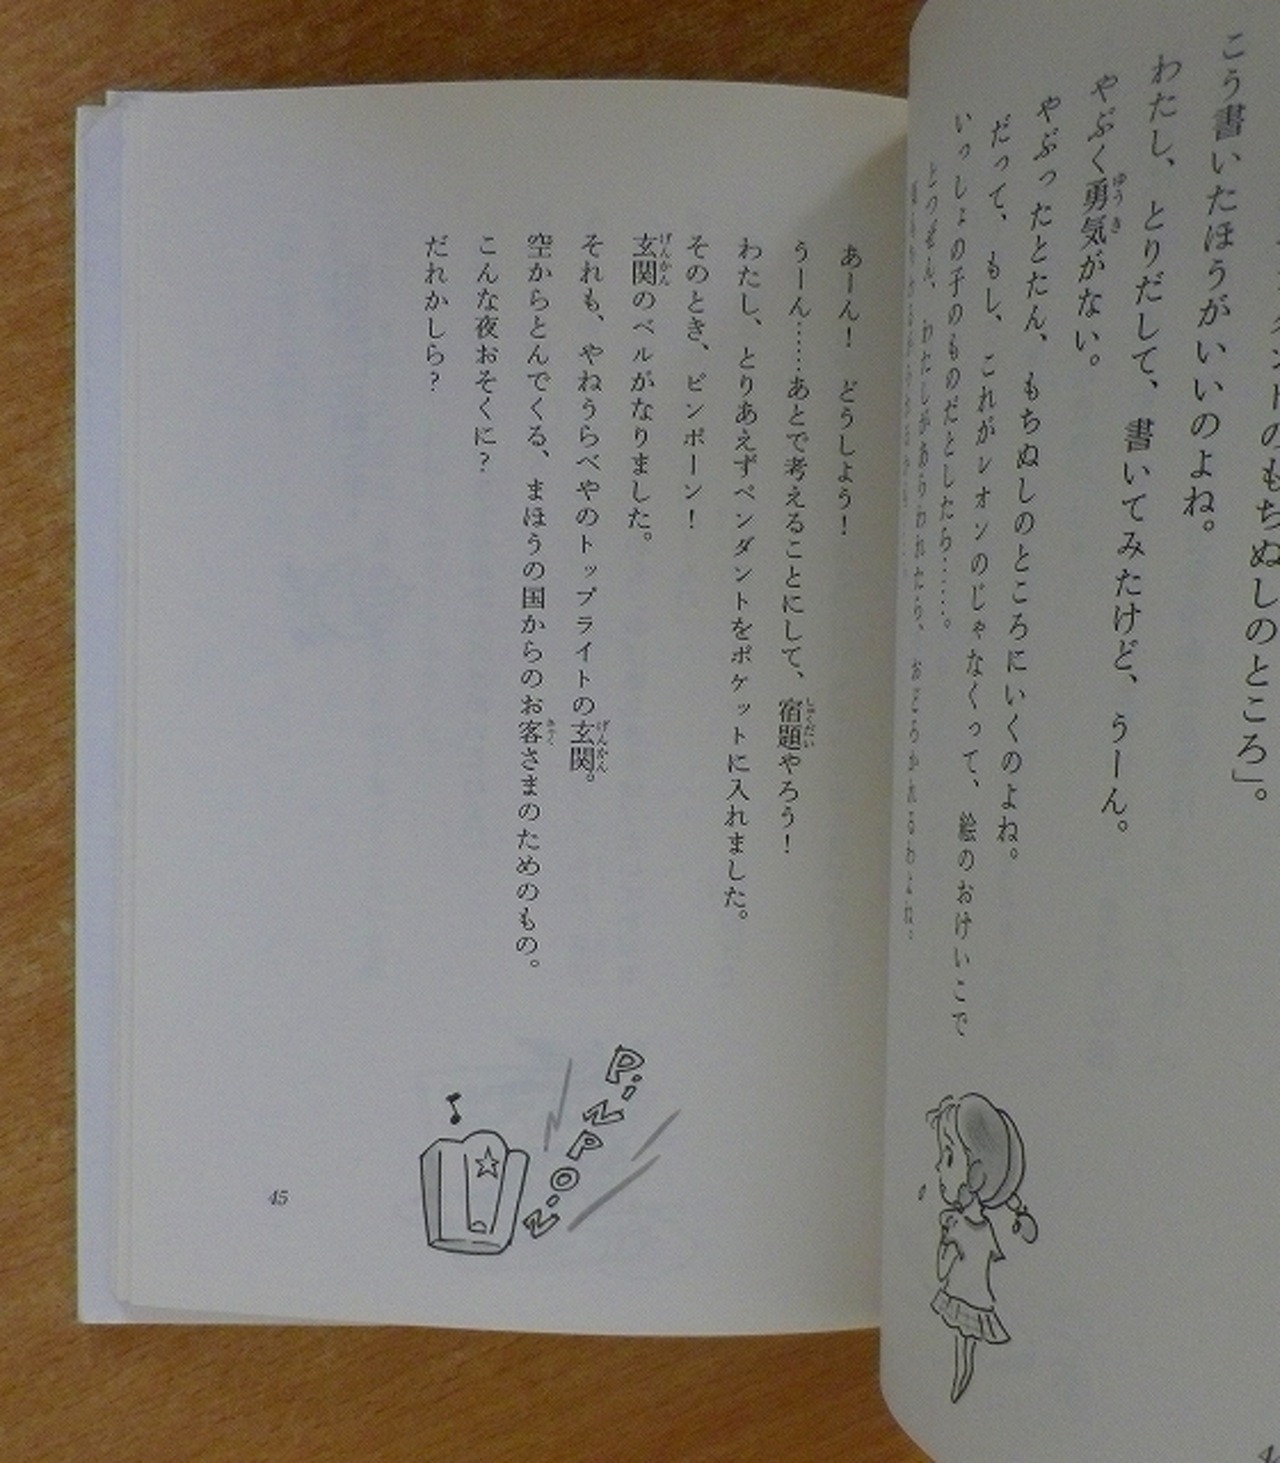 のもちぬしのところ」。
こう書いたほうがいいのよね。
わたし、とりだして、書いてみたけど、うーん。
やぶく勇気がない。
やぶったとたん、もちぬしのところにいくのよね。
だって、もし、これがレオンのじゃなくって、絵のおけいこで
いっしょの子のものだとしたら……。
とつぜん、わたしがあらわれたら、おどろかれるわよね。
あーん! どうしよう!
うーん……あとで考えることにして、宿題やろう!
わたし、とりあえずペンダントをポケットに入れました。
そのとき、ピンポーン!
玄関のベルがなりました。
それも、やねうらべやのトップライトの玄関。
空からとんでくる、まほうの国からのお客さまのためのもの。
こんな夜おそくに?
だれかしら?
PiNPON
45